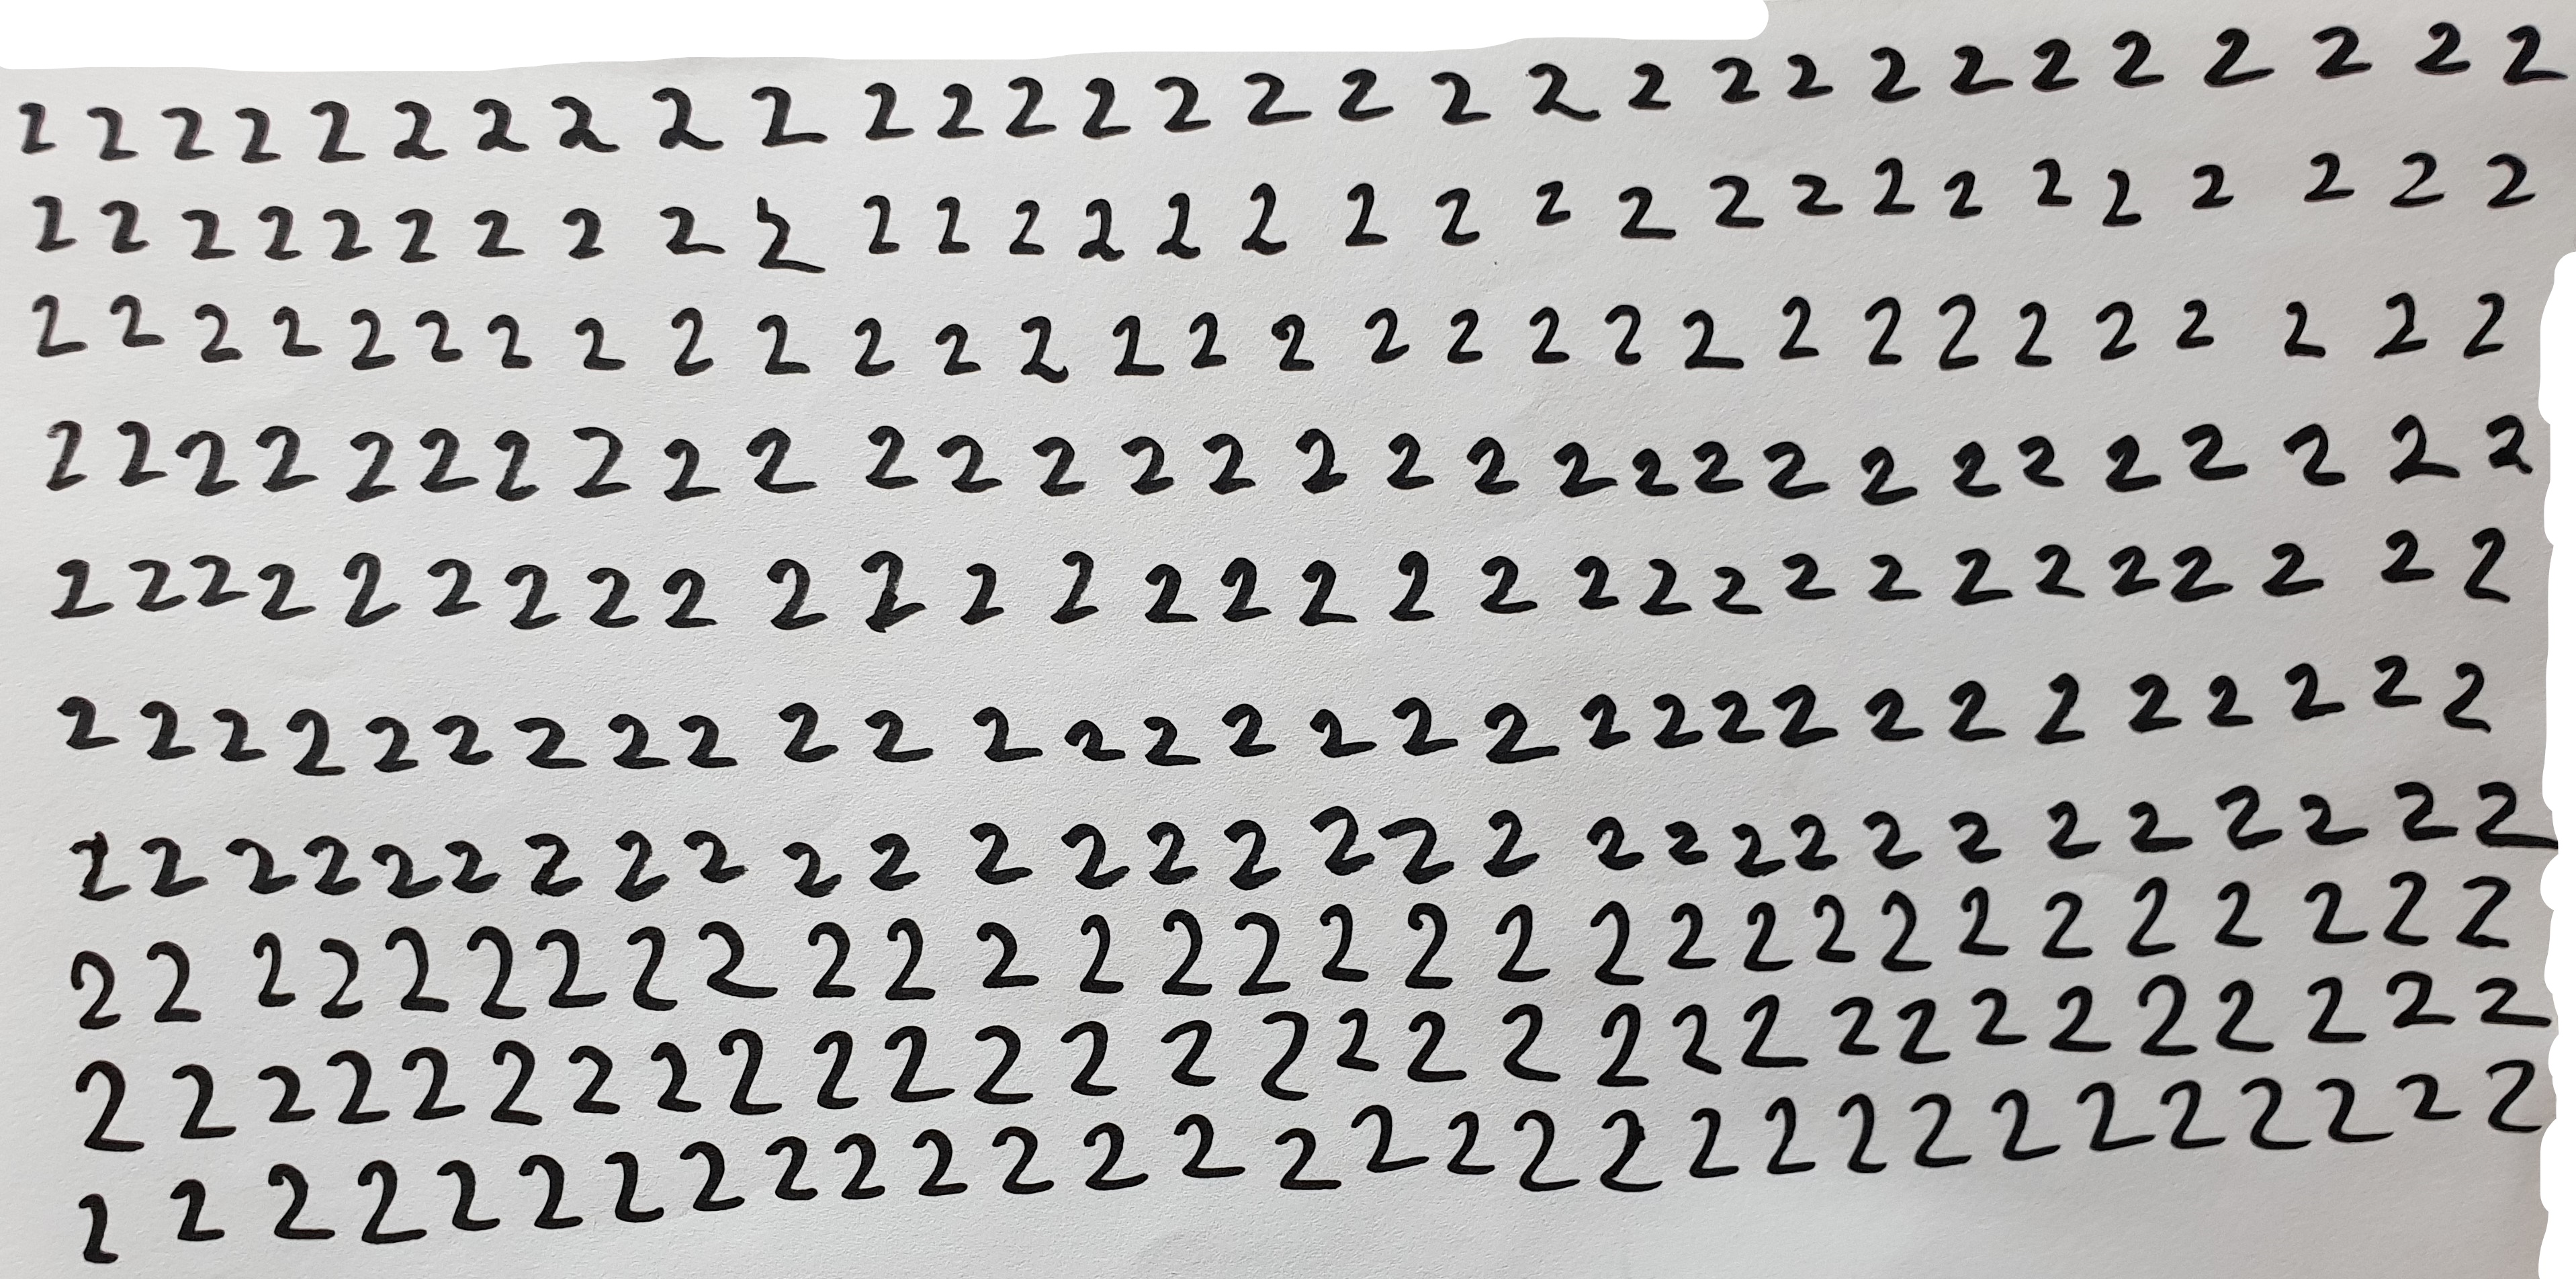 2 2 2 2 2 2 2 2 2 2 2 2 2 2 2 2 2 2 2 2 2 2 2 2 2 2 2 2 2 2
2 2 2 2 2 2 2 2 2 2 2 2 2 2 2 2 2 2 2 2 2 2 2 2 2 2 2 2 2 2
2 2 2 2 2 2 2 2 2 2 2 2 2 2 2 2 2 2 2 2 2 2 2 2 2 2 2 2 2 2
2 2 2 2 2 2 2 2 2 2 2 2 2 2 2 2 2 2 2 2 2 2 2 2 2 2 2 2 2 2
2 2 2 2 2 2 2 2 2 2 2 2 2 2 2 2 2 2 2 2 2 2 2 2 2 2 2 2 2 2
2 2 2 2 2 2 2 2 2 2 2 2 2 2 2 2 2 2 2 2 2 2 2 2 2 2 2 2 2 2
2 2 2 2 2 2 2 2 2 2 2 2 2 2 2 2 2 2 2 2 2 2 2 2 2 2 2 2 2 2
2 2 2 2 2 2 2 2 2 2 2 2 2 2 2 2 2 2 2 2 2 2 2 2 2 2 2 2 2 2
2 2 2 2 2 2 2 2 2 2 2 2 2 2 2 2 2 2 2 2 2 2 2 2 2 2 2 2 2 2
2 2 2 2 2 2 2 2 2 2 2 2 2 2 2 2 2 2 2 2 2 2 2 2 2 2 2 2 2 2